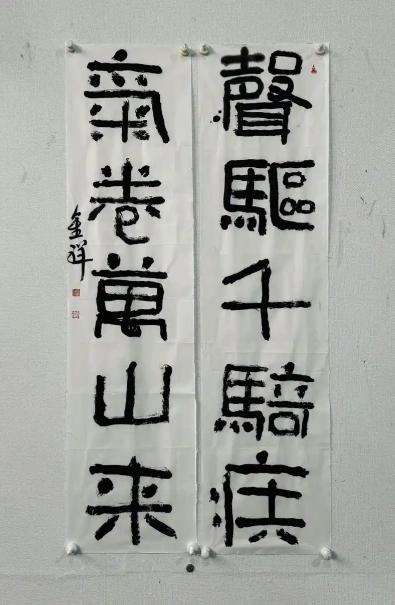 聲驅千騎疾
氣卷萬山来
金祥